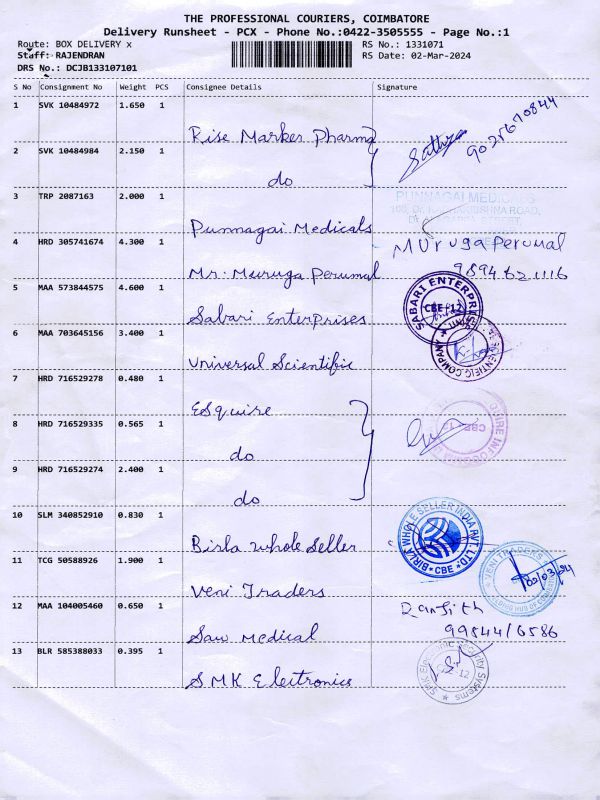 THE PROFESSIONAL COURIERS, COIMBATORE
Delivery Runsheet - PCX - Phone No.:0422-3505555 - Page No.:1
Route: BOX DELIVERY x
RS No.: 1331071
Staff: RAJENDRAN
RS Date: 02-Mar-2024
DRS No.: DCJB133107101
S No Consignment No Weight PCS Consignee Details Signature
1 SVK 10484972 1.650 1
Rise Marker Pharma
Sathya 
2 SVK 10484984 2.150 1
do
3 TRP 2087163 2.000 1
PUNNAGAI MEDICALS
Punnagai Medicals
4 HRD 305741674 4.300 1
Muruga Perumal
Mr. Muruga Perumal
9894621116
5 MAA 573844575 4.600 1
SABARI ENTERPRISES
CBE-12
Sabari Enterprises
6 MAA 703645156 3.400 1
Universal Scientific
7 HRD 716529278 0.480 1
ESquire
8 HRD 716529335 0.565 1
do
9 HRD 716529274 2.400 1
do
10 SLM 340852910 0.830 1
BIRLA WHOLE SELLER INDIA PVT. LTD.
CBE
Birla whole Seller
11 TCG 50588926 1.900 1
VENI TRADERS
Veni Traders
12 MAA 104005460 0.650 1
Ranjith
Saw medical
13 BLR 585388033 0.395 1
SMK Electronics